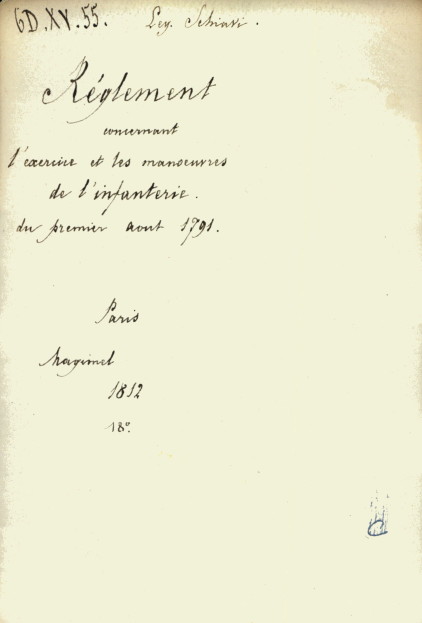 6D.XV.55. Leg. Schiavi.
Réglement
concernant
l'exercice et les manoeuvres
de l'infanterie.
du premier aout 1791.
Paris
Magimel
1812
18º.